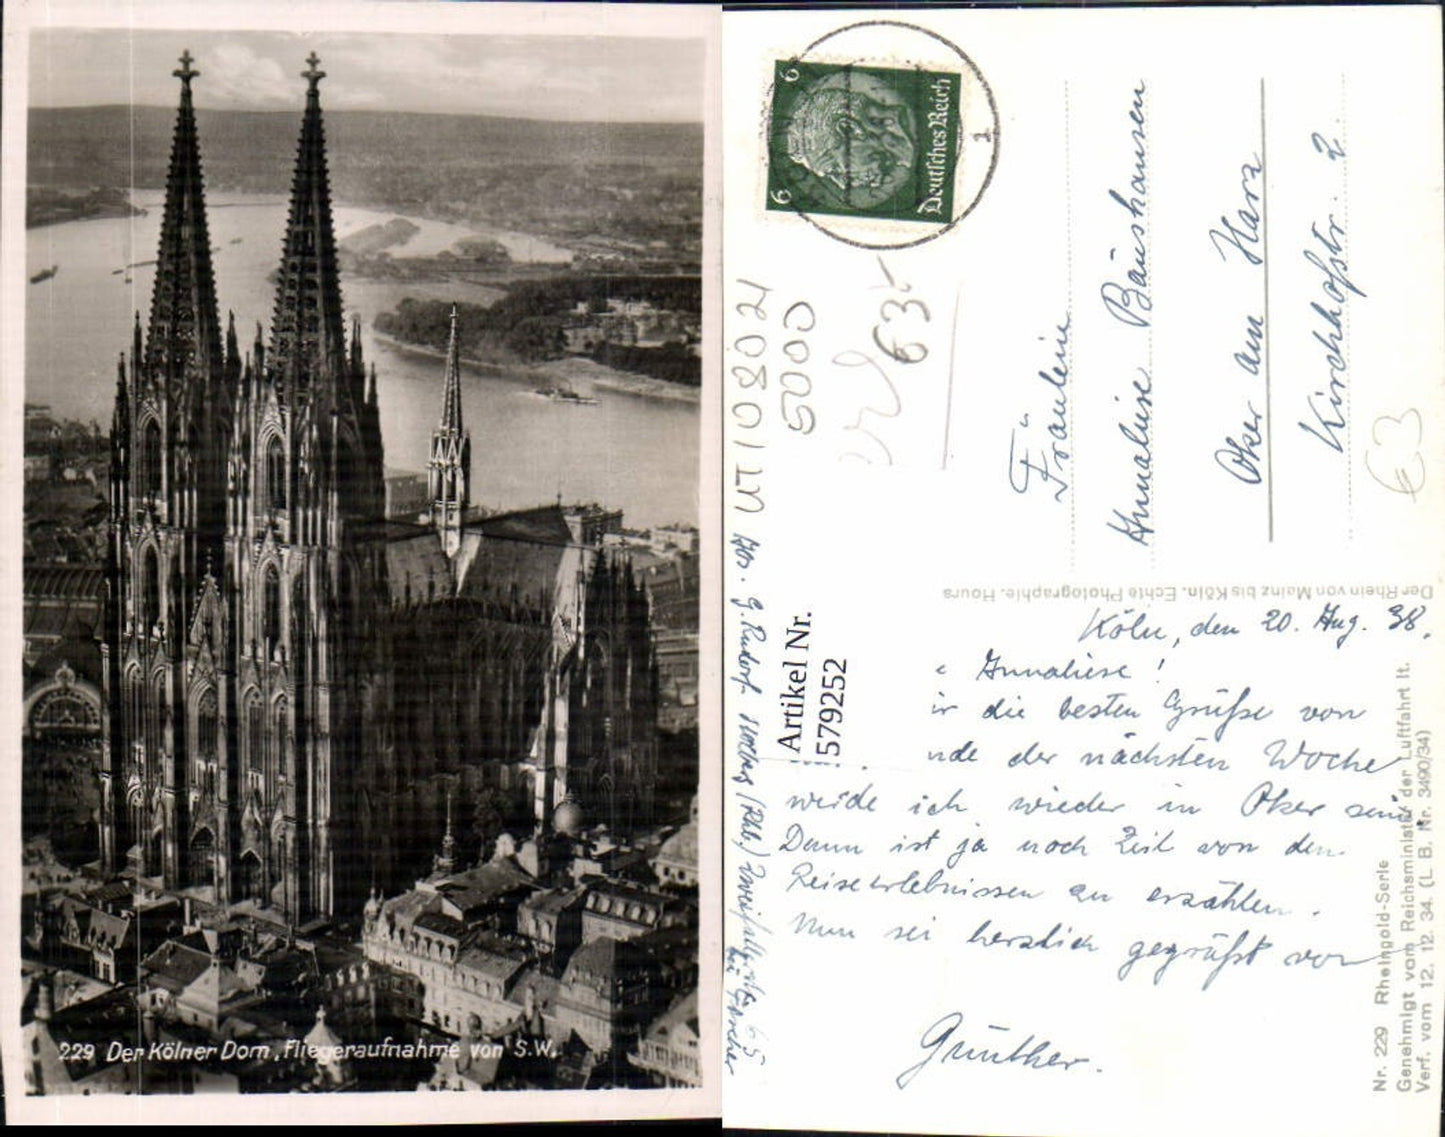 229 Der Kölner Dom, Fliegeraufnahme von S.W.
6
6
Deutsches Reich
1
UT108021
5000
635
€3
Artikel Nr.
579252
Fräulein
Annaliese Baushausen
Oker am Harz
Kirchhofstr. 2
Der Rhein von Mainz bis Köln. Echte Photographie. Hours
Köln, den 20. Aug. 38.
e Annaliese!
ir die besten Grüße von
nde der nächsten Woche
werde ich wieder in Oker sein.
Dann ist ja noch Zeit von den
Reiseerlebnissen zu erzählen.
Nun sei herzlich gegrüßt von
Günther.
Abs. G. Rudorf Stolberg (Rhl.) Zweifallerstr. 65
bei Fischer
Nr. 229 Rheingold-Serie
Genehmigt vom Reichsminister der Luftfahrt lt.
Verf. vom 12. 12. 34. (L. B. Nr. 3490/34)